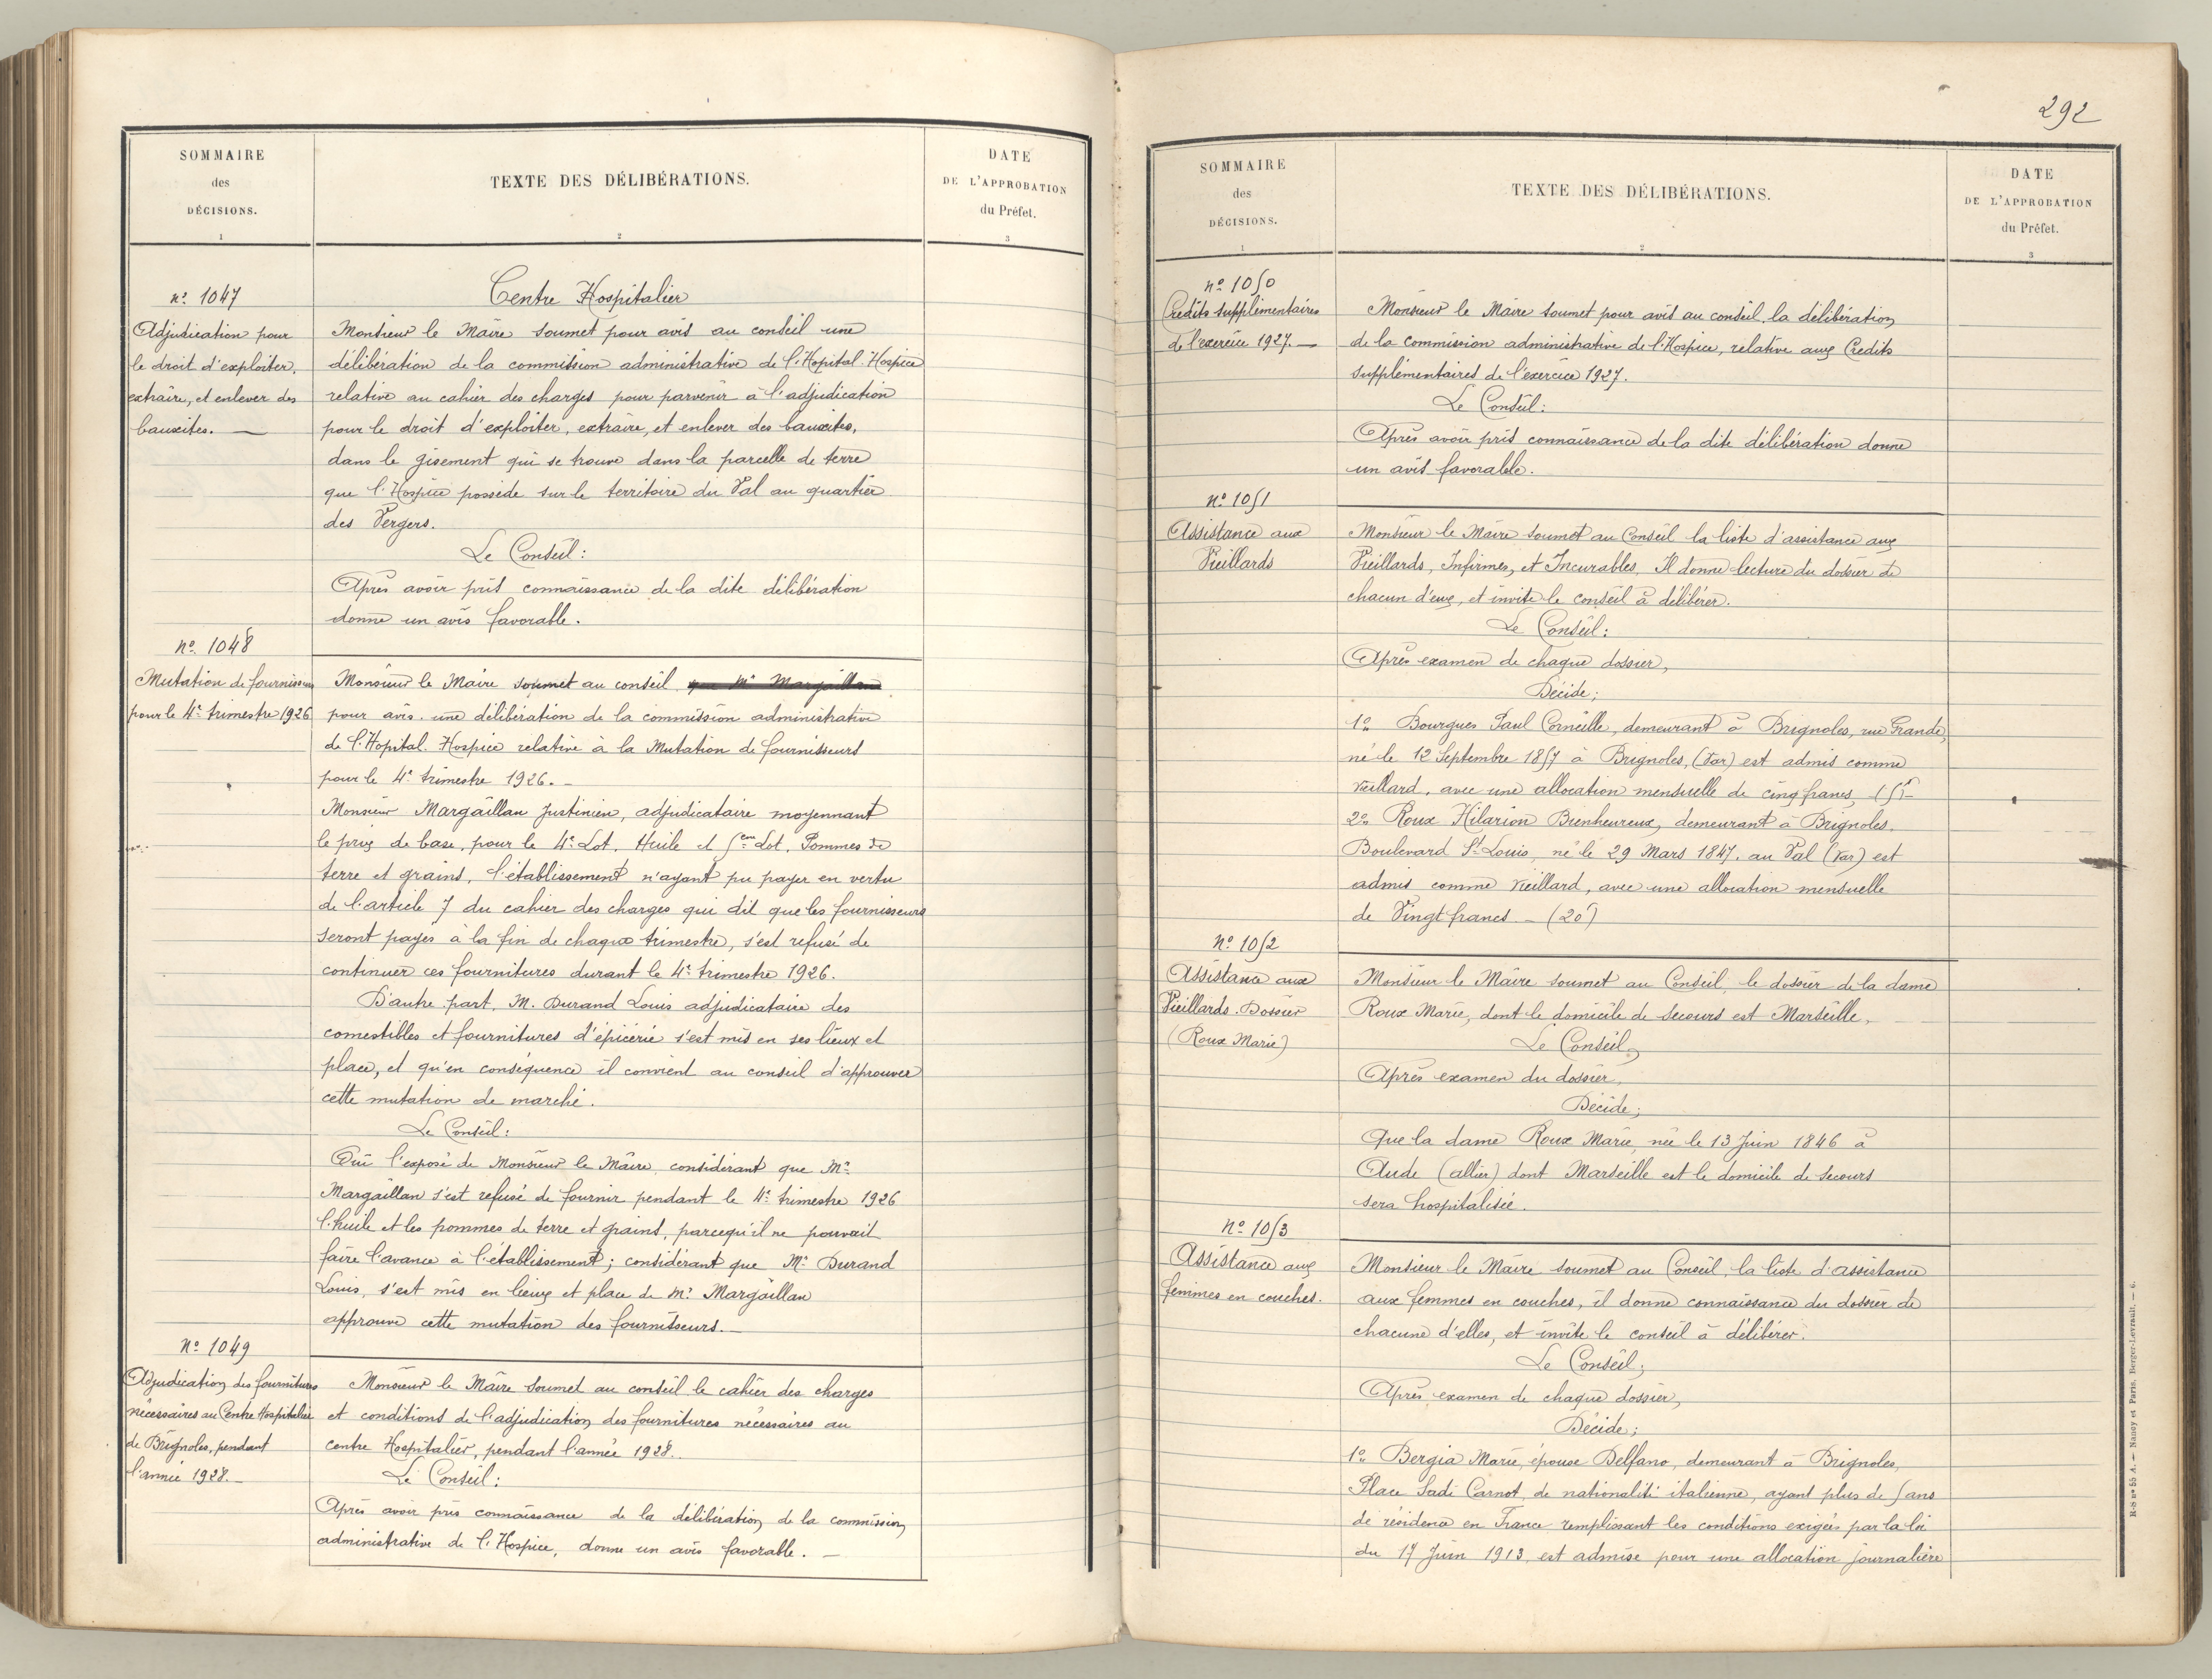 SOMMAIRE
des
DÉCISIONS.
1
TEXTE DES DÉLIBÉRATIONS.
2
DATE
DE L'APPROBATION
du Préfet.
3
Centre Hospitalier
nº 1047
Adjudication pour
le droit d'exploiter,
extraire, et enlever des
bauxites. —
Monsieur le Maire soumet pour avis au conseil une
délibération de la commission administrative de l'Hopital-Hospice
relative au cahier des charges pour parvenir à l'adjudication
pour le droit d'exploiter, extraire, et enlever des bauxites,
dans le gisement qui se trouve dans la parcelle de terre
que l'Hospice possède sur le territoire du Val au quartier
des Vergers.
Le Conseil:
Après avoir pris connaissance de la dite délibération
donne un avis favorable.
nº 1048
Mutation de fournisseurs
pour le 4e trimestre 1926
Monsieur le Maire soumet au conseil que Mr Margaillan
pour avis une délibération de la commission administrative
de l'Hopital-Hospice relative à la Mutation de fournisseurs
pour le 4e trimestre 1926. —
Monsieur Margaillan Justinien, adjudicataire moyennant
le prix de base, pour le 4e Lot, Huile et 5em Lot, Pommes de
terre et grains, l'établissement n'ayant pu payer en vertu
de l'article 7 du cahier des charges qui dit que les fournisseurs
seront payés à la fin de chaque trimestre, s'est refusé de
continuer ces fournitures durant le 4e trimestre 1926.
D'autre part, M. Durand Louis adjudicataire des
comestibles et fournitures d'épicerie s'est mis en ses lieux et
place, et qu'en conséquence il convient au conseil d'approuver
cette mutation de marché.
Le Conseil:
Oui l'exposé de Monsieur le Maire, considérant que Mr
Margaillan s'est refusé de fournir pendant le 4e trimestre 1926
l'huile et les pommes de terre et grains, parcequ'il ne pouvait
faire l'avance à l'établissement; considérant que Mr Durand
Louis, s'est mis en lieux et place de Mr Margaillan
approuve cette mutation des fournisseurs. —
Nº 1049
Adjudication des fournitures
nécessaires au Centre Hospitalier
de Brignoles, pendant
l'année 1928. —
Monsieur le Maire soumet au conseil le cahier des charges
et conditions de l'adjudication des fournitures nécessaires au
centre Hospitalier, pendant l'année 1928.
Le Conseil:
Après avoir pris connaissance de la délibération de la commission
administrative de l'Hospice, donne un avis favorable. —
292
SOMMAIRE
des
DÉCISIONS.
1
TEXTE DES DÉLIBÉRATIONS.
2
DATE
DE L'APPROBATION
du Préfet.
3
nº 1050
Crédits supplémentaires
de l'exercice 1927. —
Monsieur le Maire soumet pour avis au conseil, la délibération
de la commission administrative de l'Hospice, relative aux Crédits
supplémentaires de l'exercice 1927.
Le Conseil:
Après avoir pris connaissance de la dite délibération donne
un avis favorable.
Nº 1051
Assistance aux
Vieillards
Monsieur le Maire soumet au Conseil la liste d'assistance aux
Vieillards, Infirmes, et Incurables, Il donne lecture du dossier de
chacun d'eux, et invite le conseil à délibérer.
Le Conseil:
Après examen de chaque dossier,
Décide;
1º Bourgues Paul Corneille, demeurant à Brignoles, rue Grande,
né le 12 Septembre 1857 à Brignoles, (Var) est admis comme
vieillard, avec une allocation mensuelle de cinq francs, (5f) —
2º Roux Hilarion Bienheureux, demeurant à Brignoles,
Boulevard St Louis, né le 29 Mars 1847, au Val (Var) est
admis comme vieillard, avec une allocation mensuelle
de Vingt francs — (20f)
Nº 1052
Assistance aux
Vieillards. Dossier
(Roux Marie)
Monsieur le Maire soumet au Conseil, le dossier de la dame
Roux Marie, dont le domicile de secours est Marseille.
Le Conseil,
Après examen du dossier,
Décide;
Que la dame Roux Marie, née le 13 Juin 1846 à
Aude (allier) dont Marseille est le domicile de secours
sera hospitalisée.
Nº 1053
Assistance aux
femmes en couches.
Monsieur le Maire soumet au Conseil, la liste d'assistance
aux femmes en couches, il donne connaissance du dossier de
chacune d'elles, et invite le conseil à délibérer.
Le Conseil;
Après examen de chaque dossier,
Décide;
1º Bergia Marie, épouse Delfano, demeurant à Brignoles,
Place Sadi Carnot, de nationalité italienne, ayant plus de 5 ans
de résidence en France remplissant les conditions exigées par la loi
du 17 Juin 1913, est admise pour une allocation journalière
R-S nº 55 A. — Nancy et Paris, Berger-Levrault. — 6.